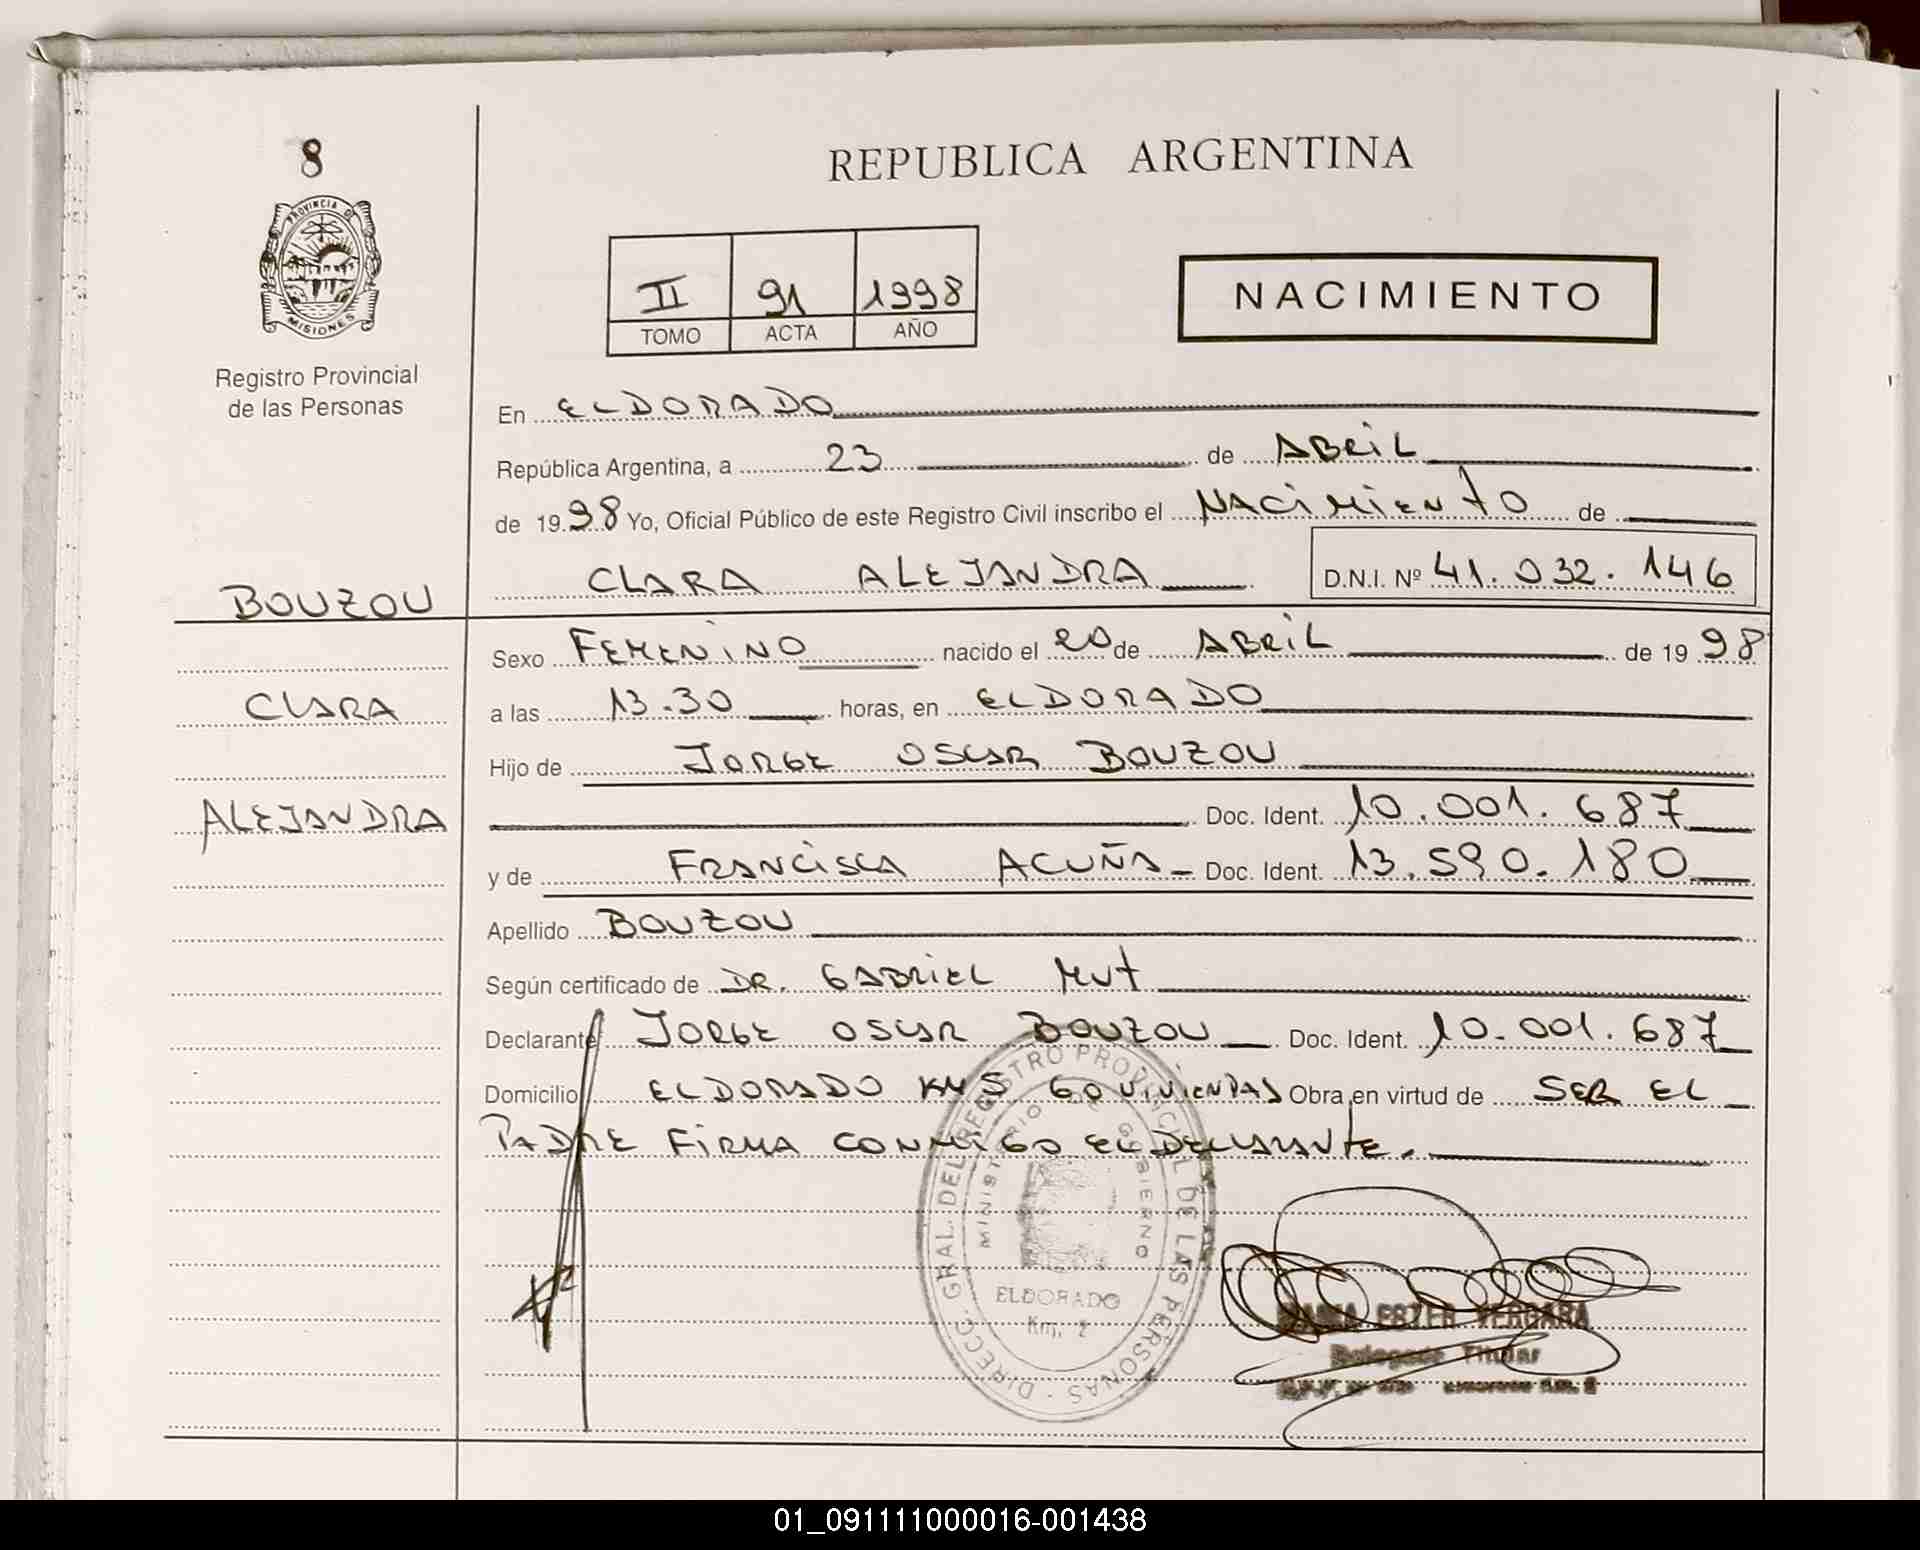 8
REPUBLICA ARGENTINA
PROVINCIA DE
MISIONES
Registro Provincial
de las Personas
II 91 1998
TOMO ACTA AÑO
NACIMIENTO
En ELDORADO
República Argentina, a 23 de ABRIL
de 1998 Yo, Oficial Público de este Registro Civil inscribo el NACIMIENTO de
CLARA ALEJANDRA D.N.I. Nº 41.032.146
BOUZOU
CLARA
ALEJANDRA
Sexo FEMENINO nacido el 20 de ABRIL de 1998
a las 13.30 horas, en ELDORADO
Hijo de JORGE OSCAR BOUZOU
Doc. Ident. 10.001.687
y de FRANCISCA ACUÑA Doc. Ident. 13.590.180
Apellido BOUZOU
Según certificado de DR. GABRIEL MUT
Declarante JORGE OSCAR BOUZOU Doc. Ident. 10.001.687
Domicilio ELDORADO 60 VIVIENDAS Obra en virtud de SER EL
PADRE FIRMA CONMIGO EL DECLARANTE.
DIRECC. GRAL. DEL REGISTRO PROVINCIAL DE LAS PERSONAS
MINISTERIO DE GOBIERNO
ELDORADO
Km. 2
VERGARA
Titular
01_091111000016-001438